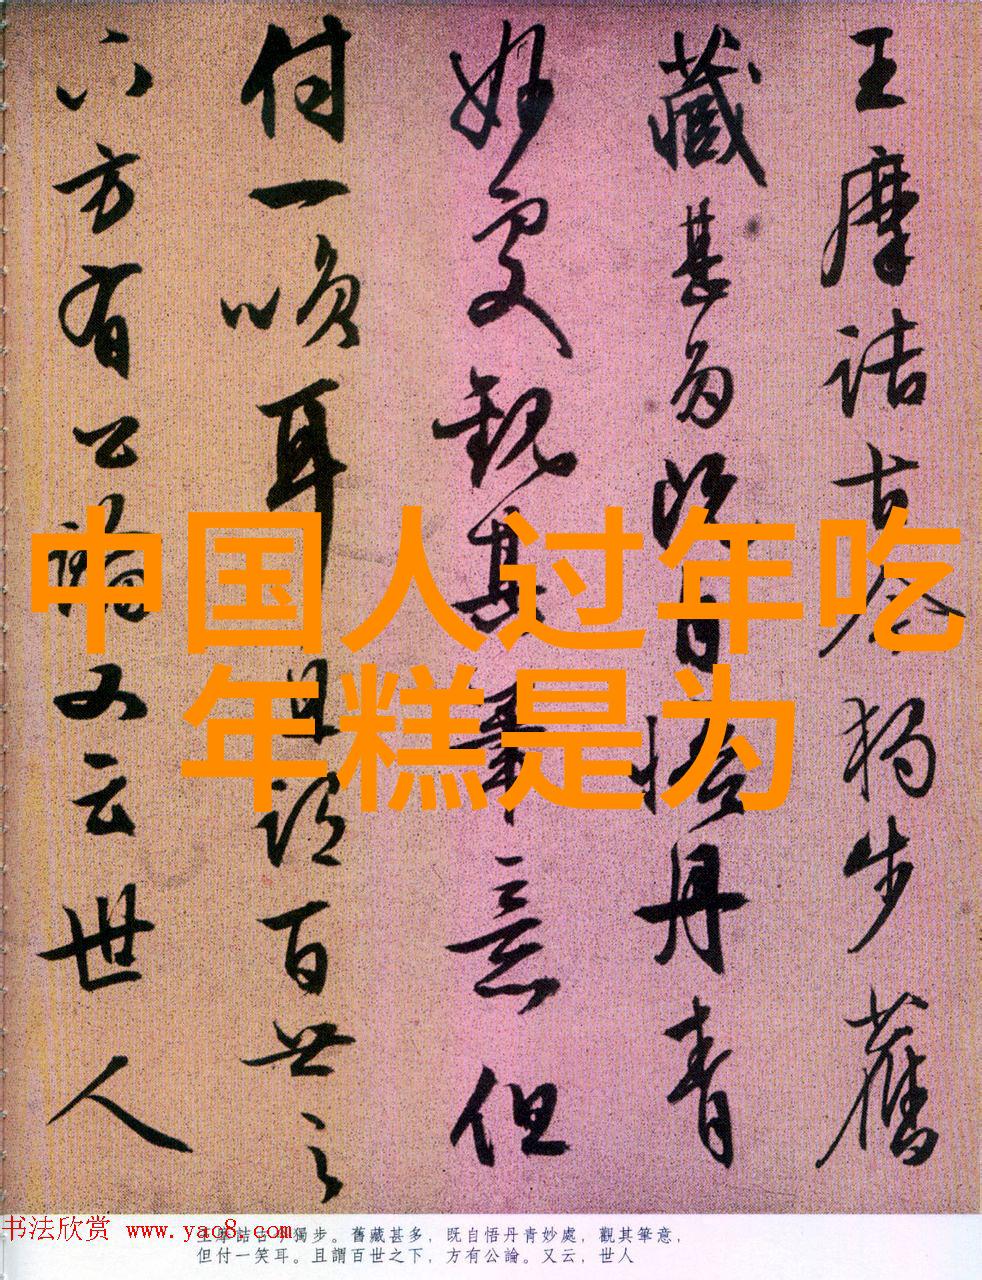 王摩詰古今獨步舊
藏甚多既自悟丹青
妙處觀其筆意但
付一笑耳且謂百世之
下方有公論又云世人
中国人过年吃
年糕是为
书法欣赏 www.yac8.com
王摩詰古今獨步。舊藏甚多，既自悟丹青妙處，觀其筆意，
但付一笑耳。且謂百世之下，方有公論。又云，世人